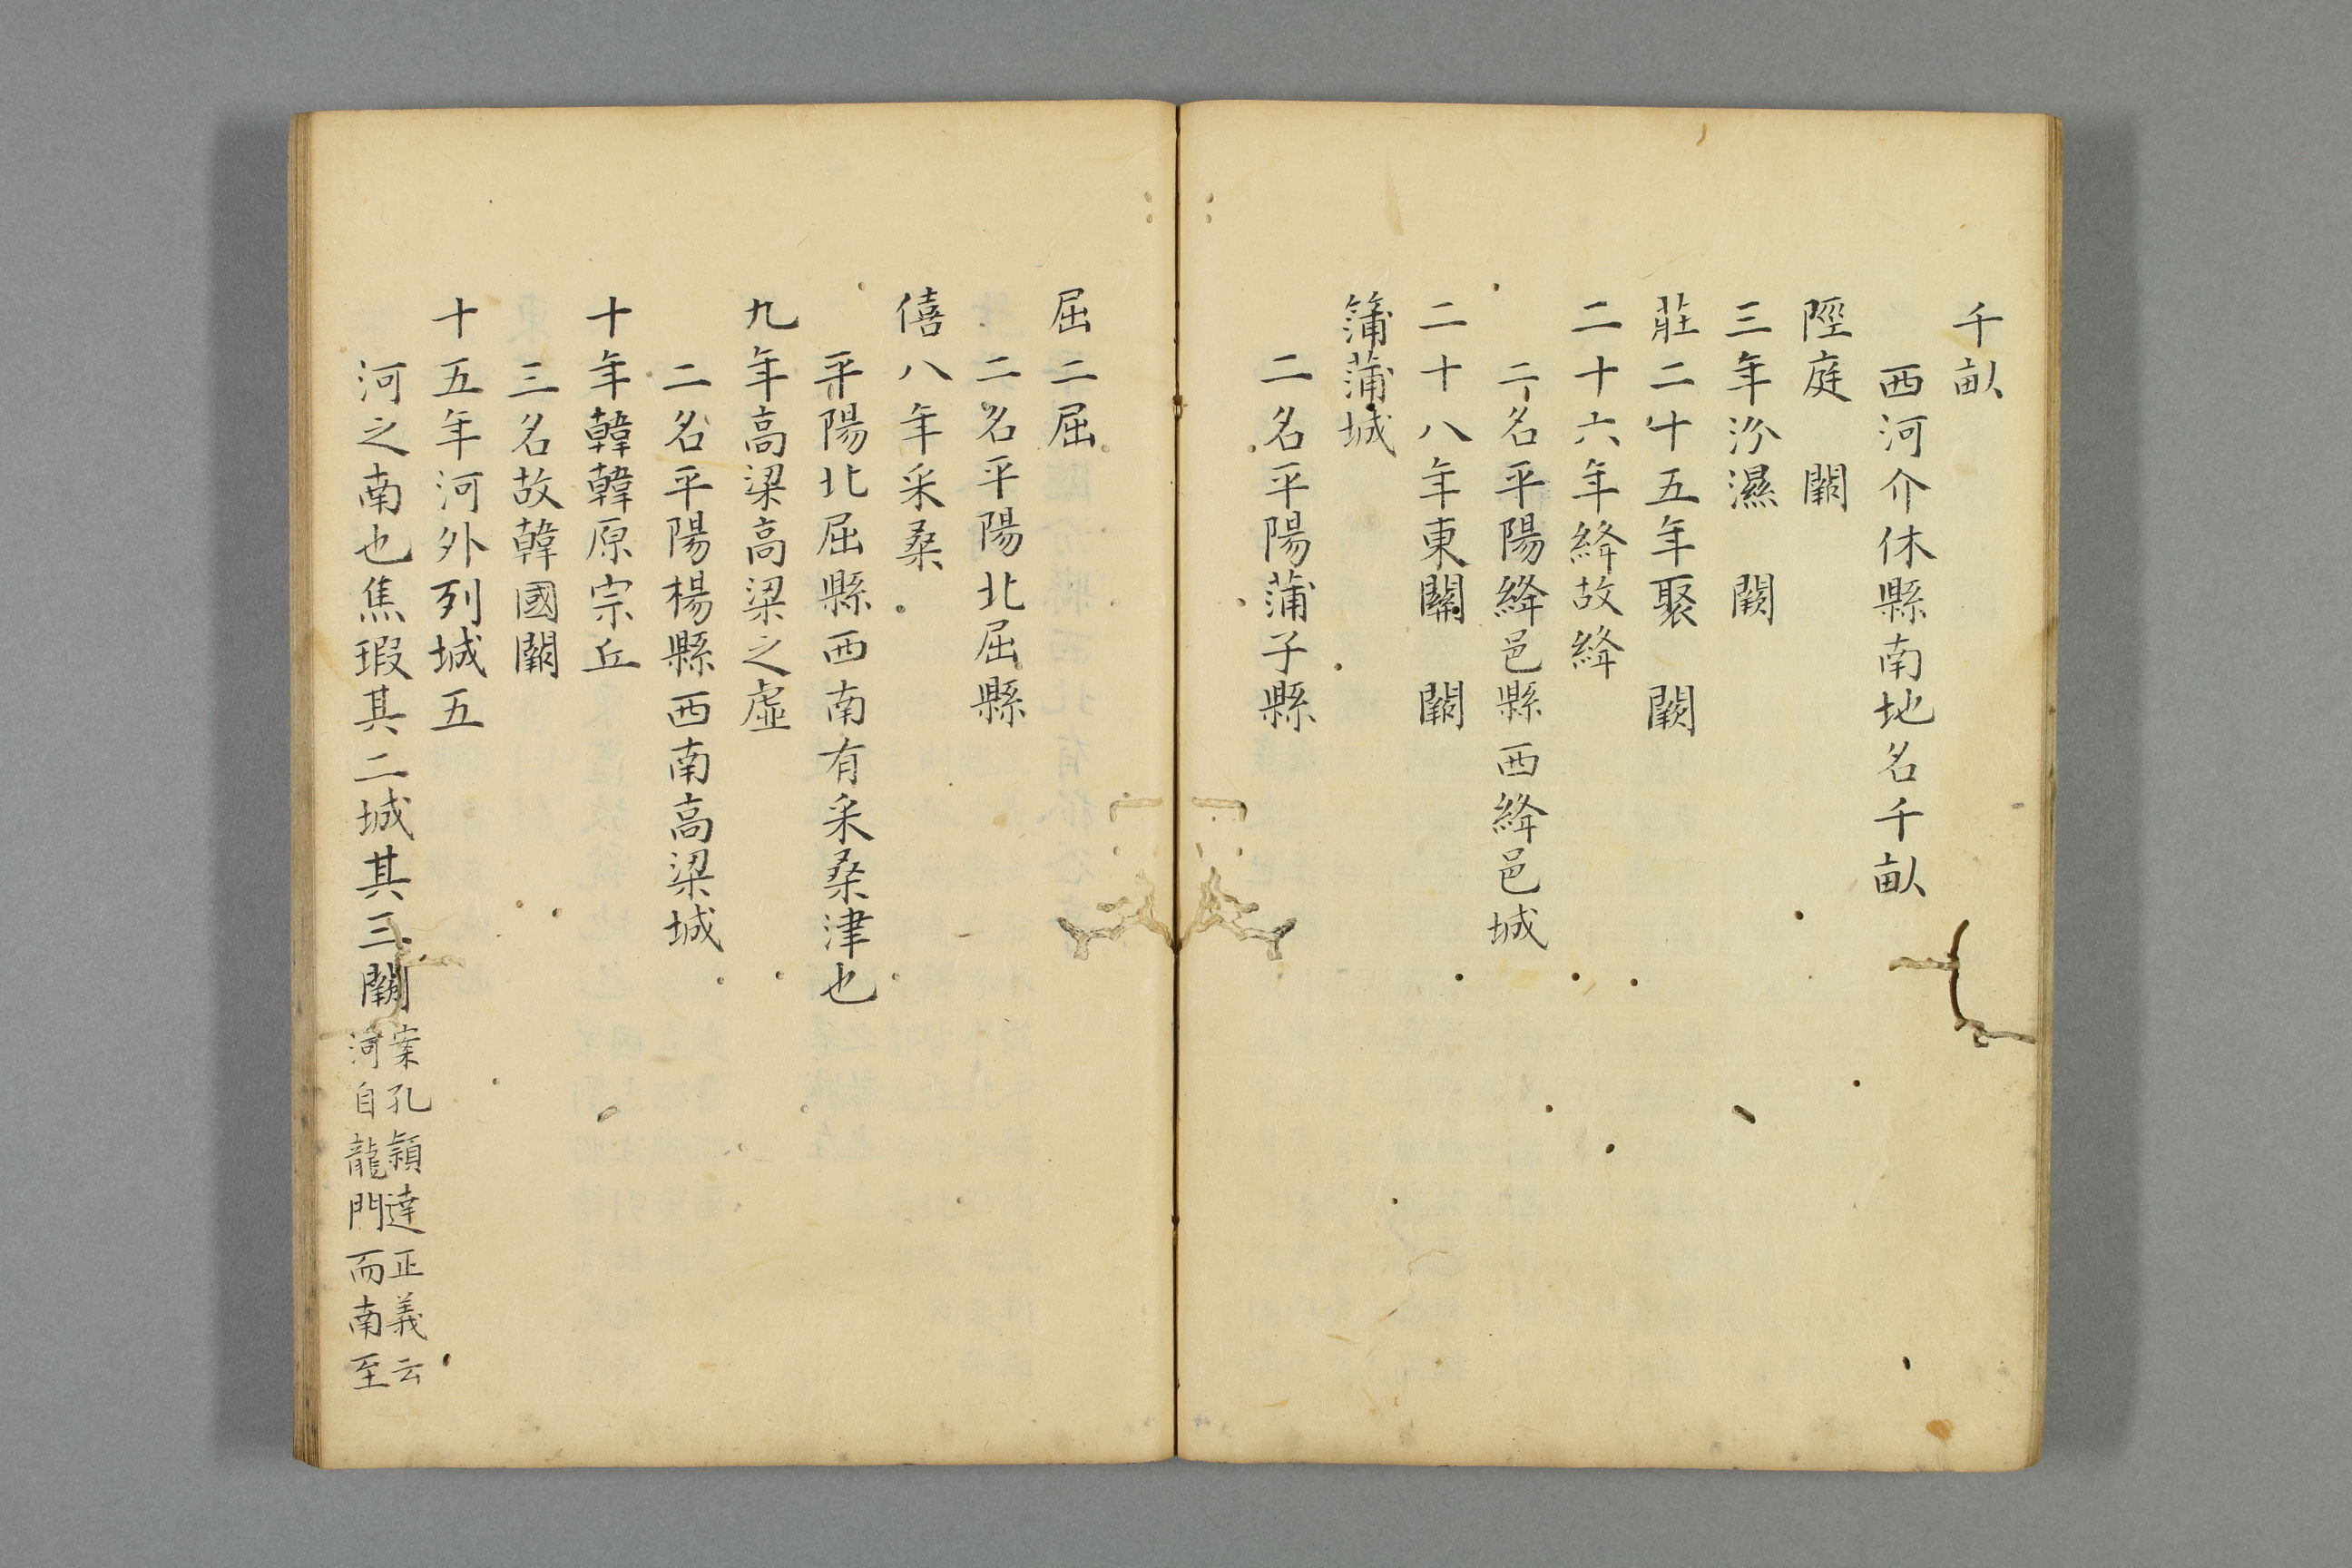 千畝
西河介休縣南地名千畝
陘庭　闕
三年汾濕　闕
莊二十五年聚　闕
二十六年絳故絳
二名平陽絳邑縣西絳邑城
二十八年東關　闕
蒲蒲城
二名平陽蒲子縣
屈二屈
二名平陽北屈縣
僖八年采桑
平陽北屈縣西南有采桑津也
九年高梁高梁之虛
二名平陽楊縣西南高梁城
十年韓韓原宗丘
三名故韓國闕
十五年河外列城五
河之南也焦瑕其二城其三闕
案孔穎達正義云
河自龍門而南至